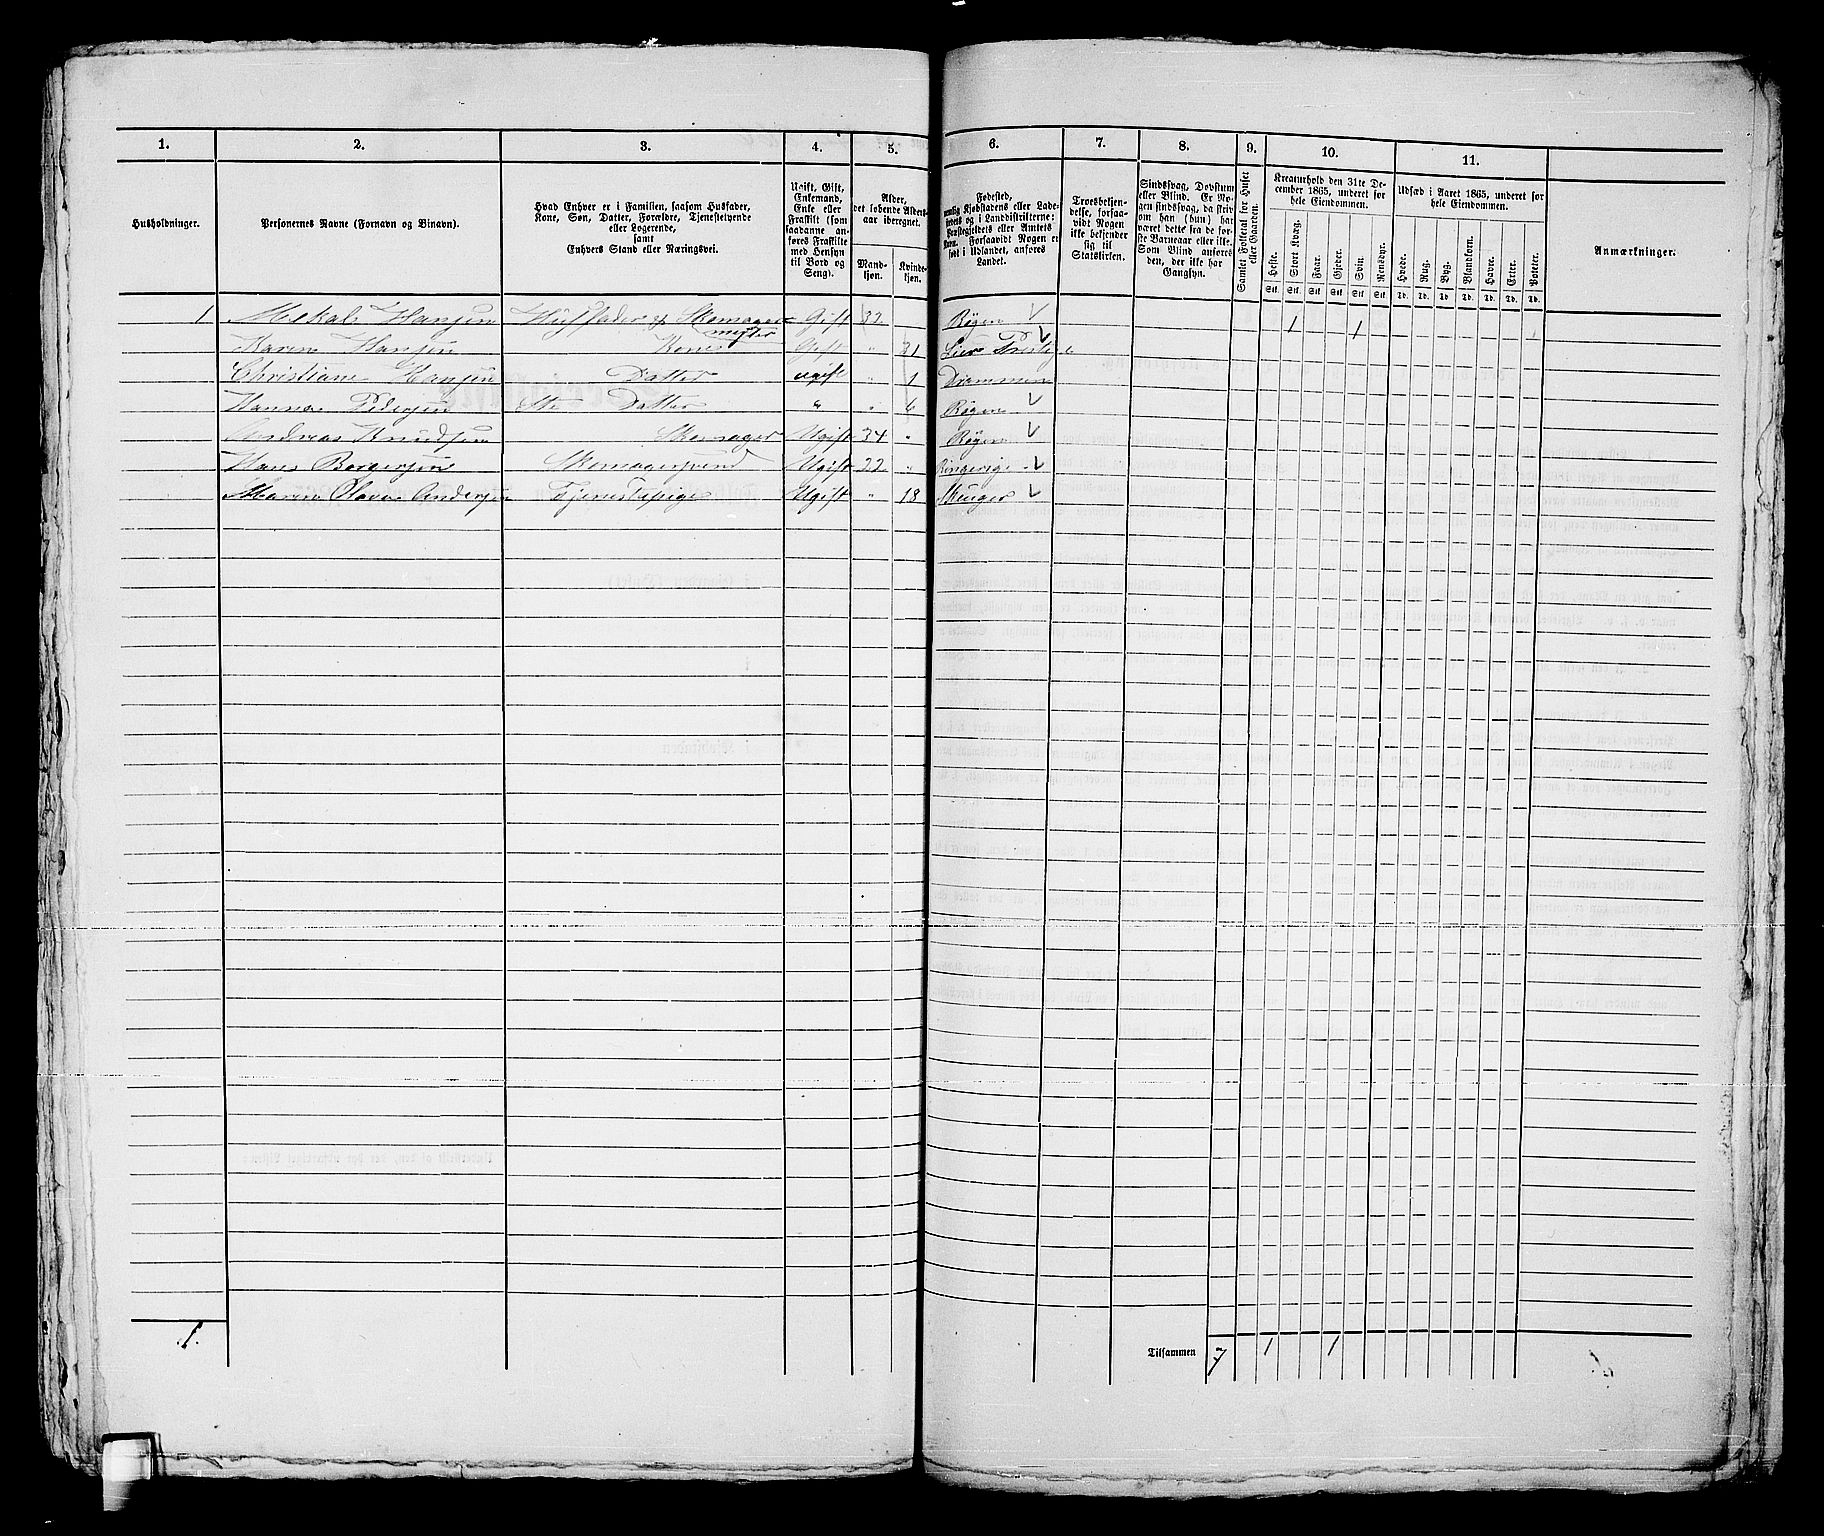 1. 2. 3. 4. 5. 6. 7. 8. 9. 10. 11.
Husholdninger.
Personernes Navne (Fornavn og Binavn).
Hvad Enhver er i Familien, saasom Husfader,
Kone, Søn, Datter, Forældre, Tjenestetyende
eller Logerende,
samt
Enhvers Stand eller Næringsvei.
Ugift, Gift,
Enkemand,
Enke eller
Fraskilt (som
saadanne an-
føres Fraskilte
med Hensyn
til Bord og
Seng).
Alder,
det løbende Alders-
aar iberegnet.
Mand-
kjøn.
Kvinde-
kjøn.
Fødested,
nemlig Kjøbstadens eller Lade-
stedets og i Landdistrikterne:
Præstegjeldets eller Amtets
Navn. Forsaavidt Nogen er
født i Udlandet, anføres
Landet.
Troesbekjen-
delse, forsaa-
vidt Nogen
ikke bekjender
sig til
Statskirken.
Sindssvag, Døvstum
eller Blind. Er No-
gen sindssvag, da skriv
om han (hun) har
været dette fra de før-
ste Barneaar eller ikke.
Som Blind anføres
den, der ikke har
Gangsyn.
Samlet Folketal for Huset
eller Gaarden.
Kreaturhold den 31te De-
cember 1865, underet for
hele Eiendommen.
Heste. Stort Kvæg. Faar. Gjeder. Svin. Rensdyr.
Stk. Stk. Stk. Stk. Stk. Stk.
Udsæd i Aaret 1865, underet for
hele Eiendommen.
Hvede. Rug. Byg. Blandkorn. Havre. Erter. Poteter.
Td. Td. Td. Td. Td. Td. Td.
Anmærkninger.
1 Mekal Hansen Husfader Skomager- Gift 32 Røgen 1 1
mester
Karen Hansen Kone Gift " 31 Lier
Christiane Hansen Datter ugift " 1 Drammen
Hanna Pedersen Datter " " 6 Røgen
Andreas Knudsen Skomager Ugift 34 " Røgen
Hans Borgersen Skomagersvend Ugift 22 " Ringerige
Maren Olava Andersen Tjenestepige Ugift " 18 Skouger
1.
Tilsammen 7 1 1